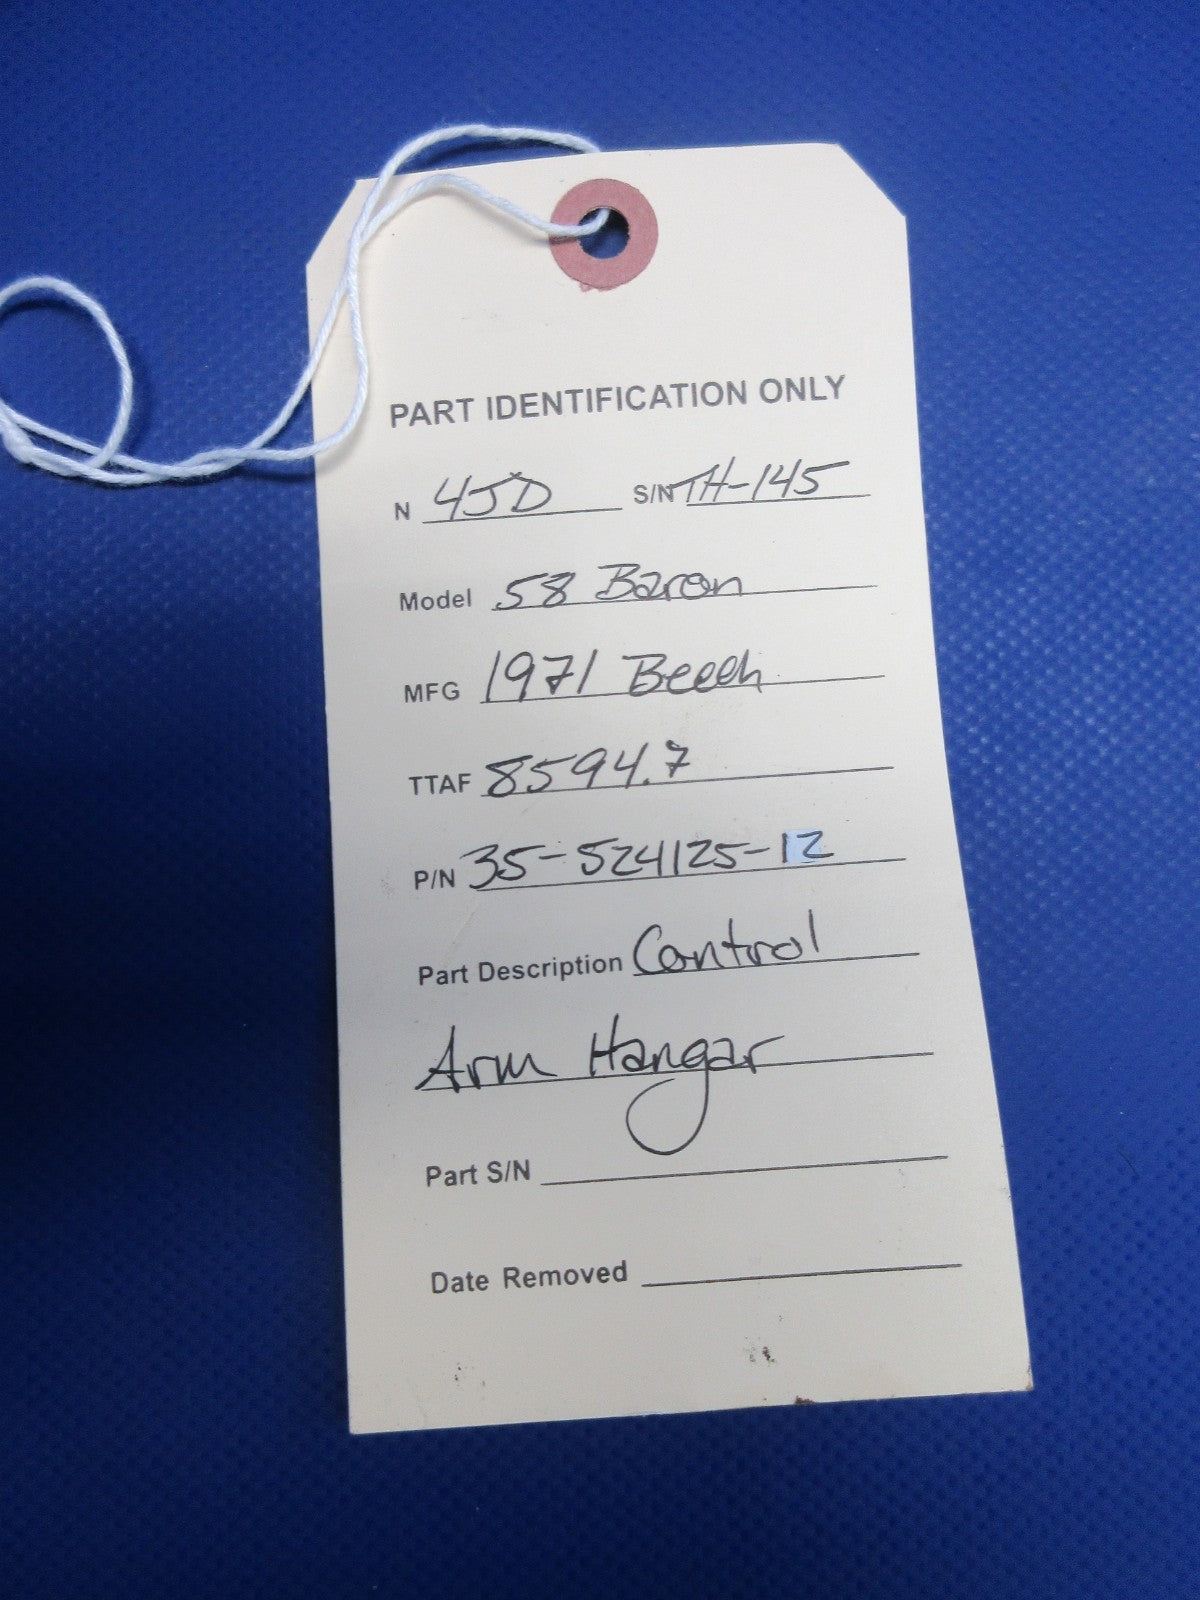 PART IDENTIFICATION ONLY
N 4JD S/N TH-145
Model 58 Baron
MFG 1971 Beech
TTAF 8594.7
P/N 35-524125-12
Part Description Control
Arm Hangar
Part S/N
Date Removed